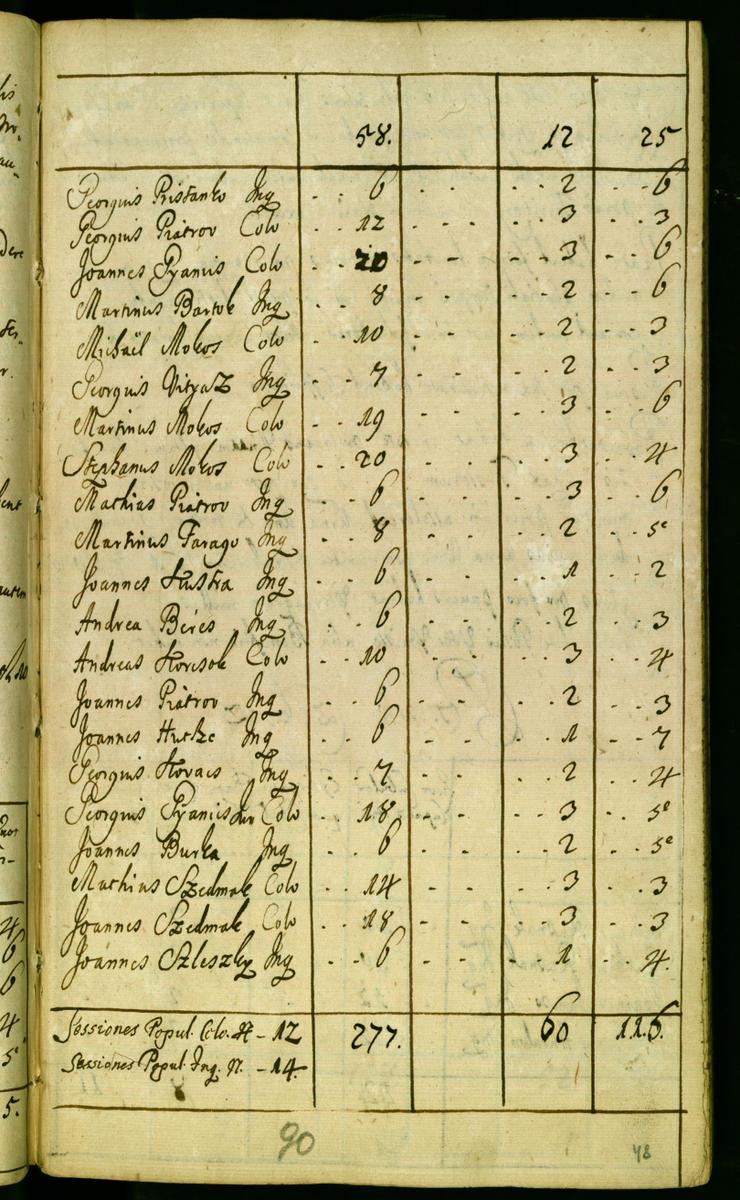 58. 12 25
Georgius Pristanko Inq . . 6 . . . . 2 . . 6
Georgius Piatrov Colo . . 12 . . . . 3 . . 3
Joannes Pyanis Colo . . 20 . . . . 3 . . 6
Martinus Bartok Inq . . 8 . . . . 2 . . 6
Michaël Mokos Colo . . 10 . . . . 2 . . 3
Georgius Vityaz Inq . . 7 . . . . 2 . . 3
Martinus Mokos Colo . . 19 . . . . 3 . . 6
Stephanus Mokos Colo . . 20 . . . . 3 . . 4
Mathias Piatrov Inq . . 6 . . . . 3 . . 6
Martinus Farago Inq . . 8 . . . . 2 . . 5
Joannes Hustra Inq . . 6 . . . . 1 . . 2
Andrea Béres Inq . . 6 . . . . 2 . . 3
Andreas Horcsok Colo . . 10 . . . . 3 . . 4
Joannes Piatrov Inq . . 6 . . . . 2 . . 3
Joannes Inq . . 6 . . . . 1 . . 7
Georgius Kovacs Inq . . 7 . . . . 2 . . 4
Georgius Pyanis Jun Colo . . 18 . . . . 3 . . 5
Joannes Burka Inq . . 6 . . . . 2 . . 5
Mathias Szedmak Colo . . 14 . . . . 3 . . 3
Joannes Szedmak Colo . . 18 . . . . 3 . . 3
Joannes Szleszky Inq . . 6 . . . . 1 . . 4.
Sessiones Popul. Colo. N - 12 277. 60 116.
Sessiones Popul. Inq. N. - 14.
90
48